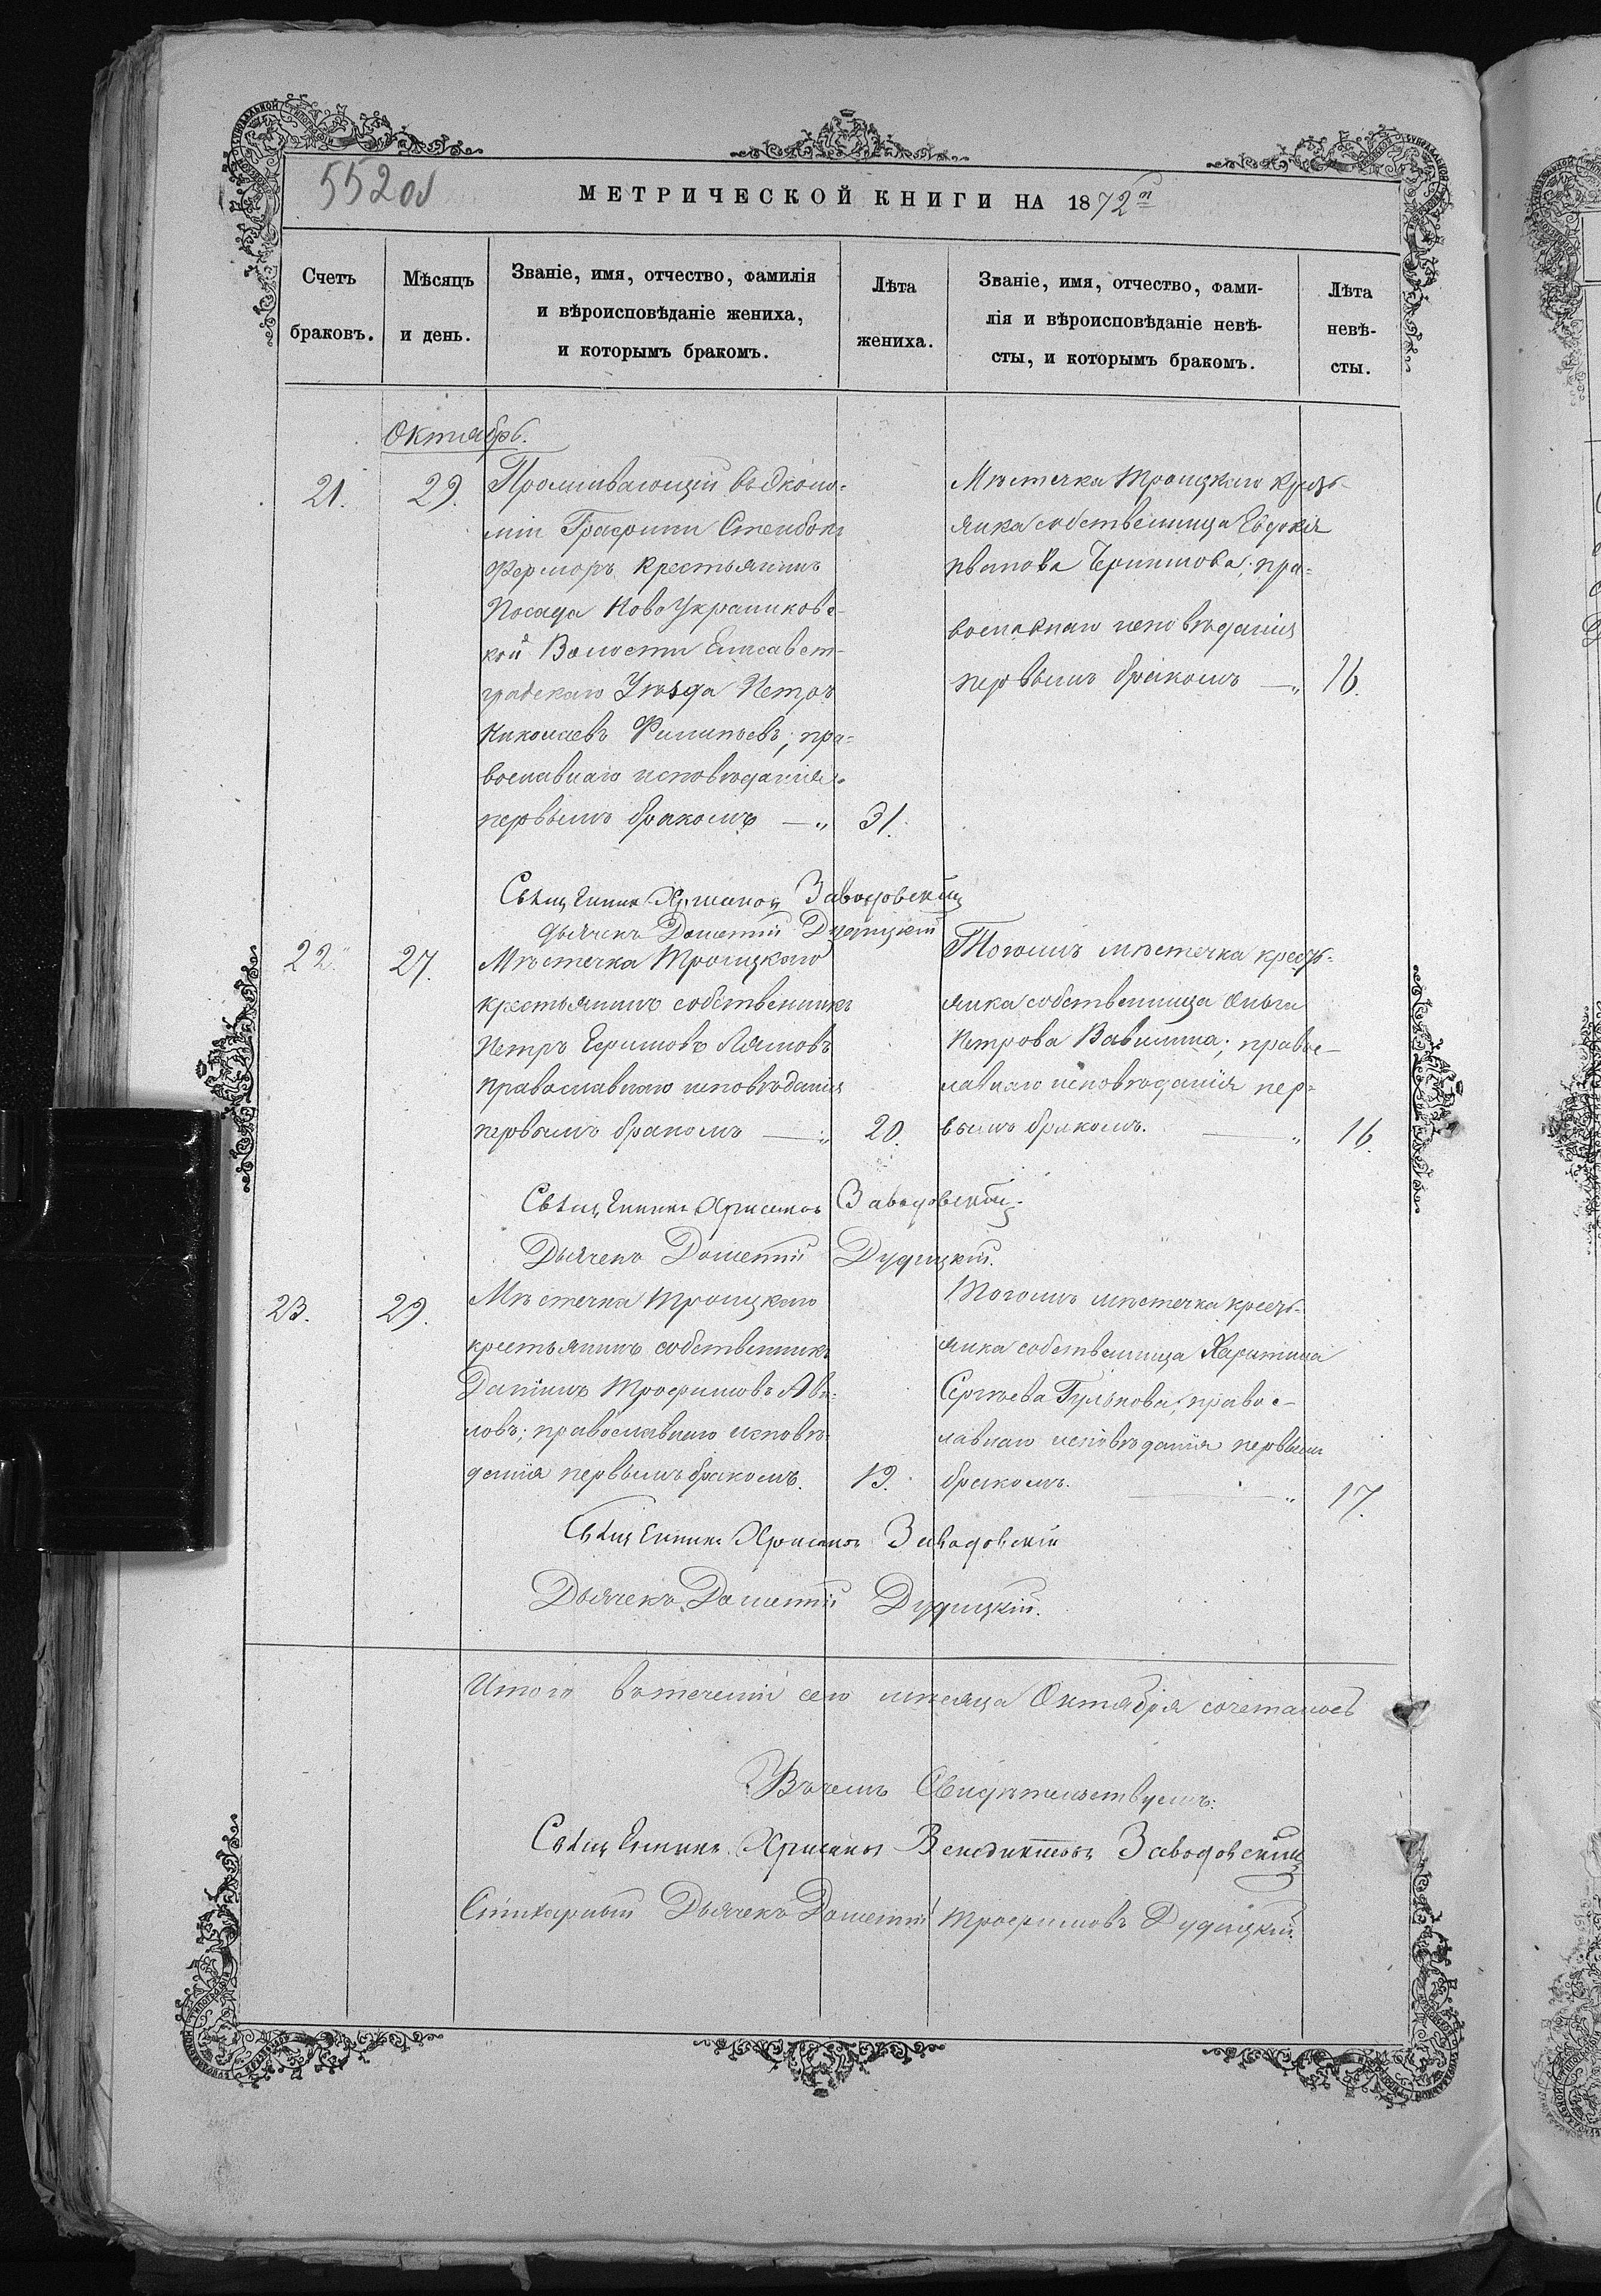 552 об
МЕТРИЧЕСКОЙ КНИГИ НА 1872й
Счетъ
браковъ.
Мѣсяцъ
и день.
Званіе, имя, отчество, фамилія
и вѣроисповѣданіе жениха,
и которымъ бракомъ.
Лѣта
жениха.
Званіе, имя, отчество, фами-
лія и вѣроисповѣданіе невѣ-
сты, и которымъ бракомъ.
Лѣта
невѣ-
сты.
Октябрь.
21.
29.
Проживающій въ Эконо-
міи Графини Стенбокъ
Ферморъ крестьянинъ
Посада Ново Украинковс-
кой Волости Елисавет-
градскаго Уѣзда Петръ
Николаевъ Филипьевъ; пра-
вославнаго исповѣданія
первымъ бракомъ — „
31.
Мѣстечка Троицкаго кресть-
янка собственница Евдокія
Иванова; пра-
вославнаго исповѣданія
первымъ бракомъ — „
16.
Священникъ Хрисанфъ Заводовскій
Дьячекъ Дометій Дудицкій
22.
27.
Мѣстечка Троицкаго
крестьянинъ собственникъ
Петръ Ефимовъ
православнаго исповѣданія
первымъ бракомъ — „
20.
Тогожъ мѣстечка кресть-
янка собственница Ольга
Петрова Вавилина; правос-
лавнаго исповѣданія пер-
вымъ бракомъ. — „
16.
Священникъ Хрисанфъ Заводовскій
Дьячекъ Дометій Дудицкій.
23.
29.
Мѣстечка Троицкаго
крестьянинъ собственникъ
Даніилъ Трофимовъ
ловъ; православнаго исповѣ-
данія первымъ бракомъ.
19.
Тогожъ мѣстечка кресть-
янка собственница Харитина
Сергѣева Гулькова; правос-
лавнаго исповѣданія первымъ
бракомъ. — „
17.
Священникъ Хрисанфъ Заводовскій
Дьячекъ Дометій Дудицкій.
Итого въ теченіи сего мѣсяца Октября сочеталось
Въ чемъ Свидѣтельствуемъ:
Священникъ Хрисанфъ Венедиктовъ Заводовскій
Стихарный Дьячекъ Дометій Трофимовъ Дудицкій.